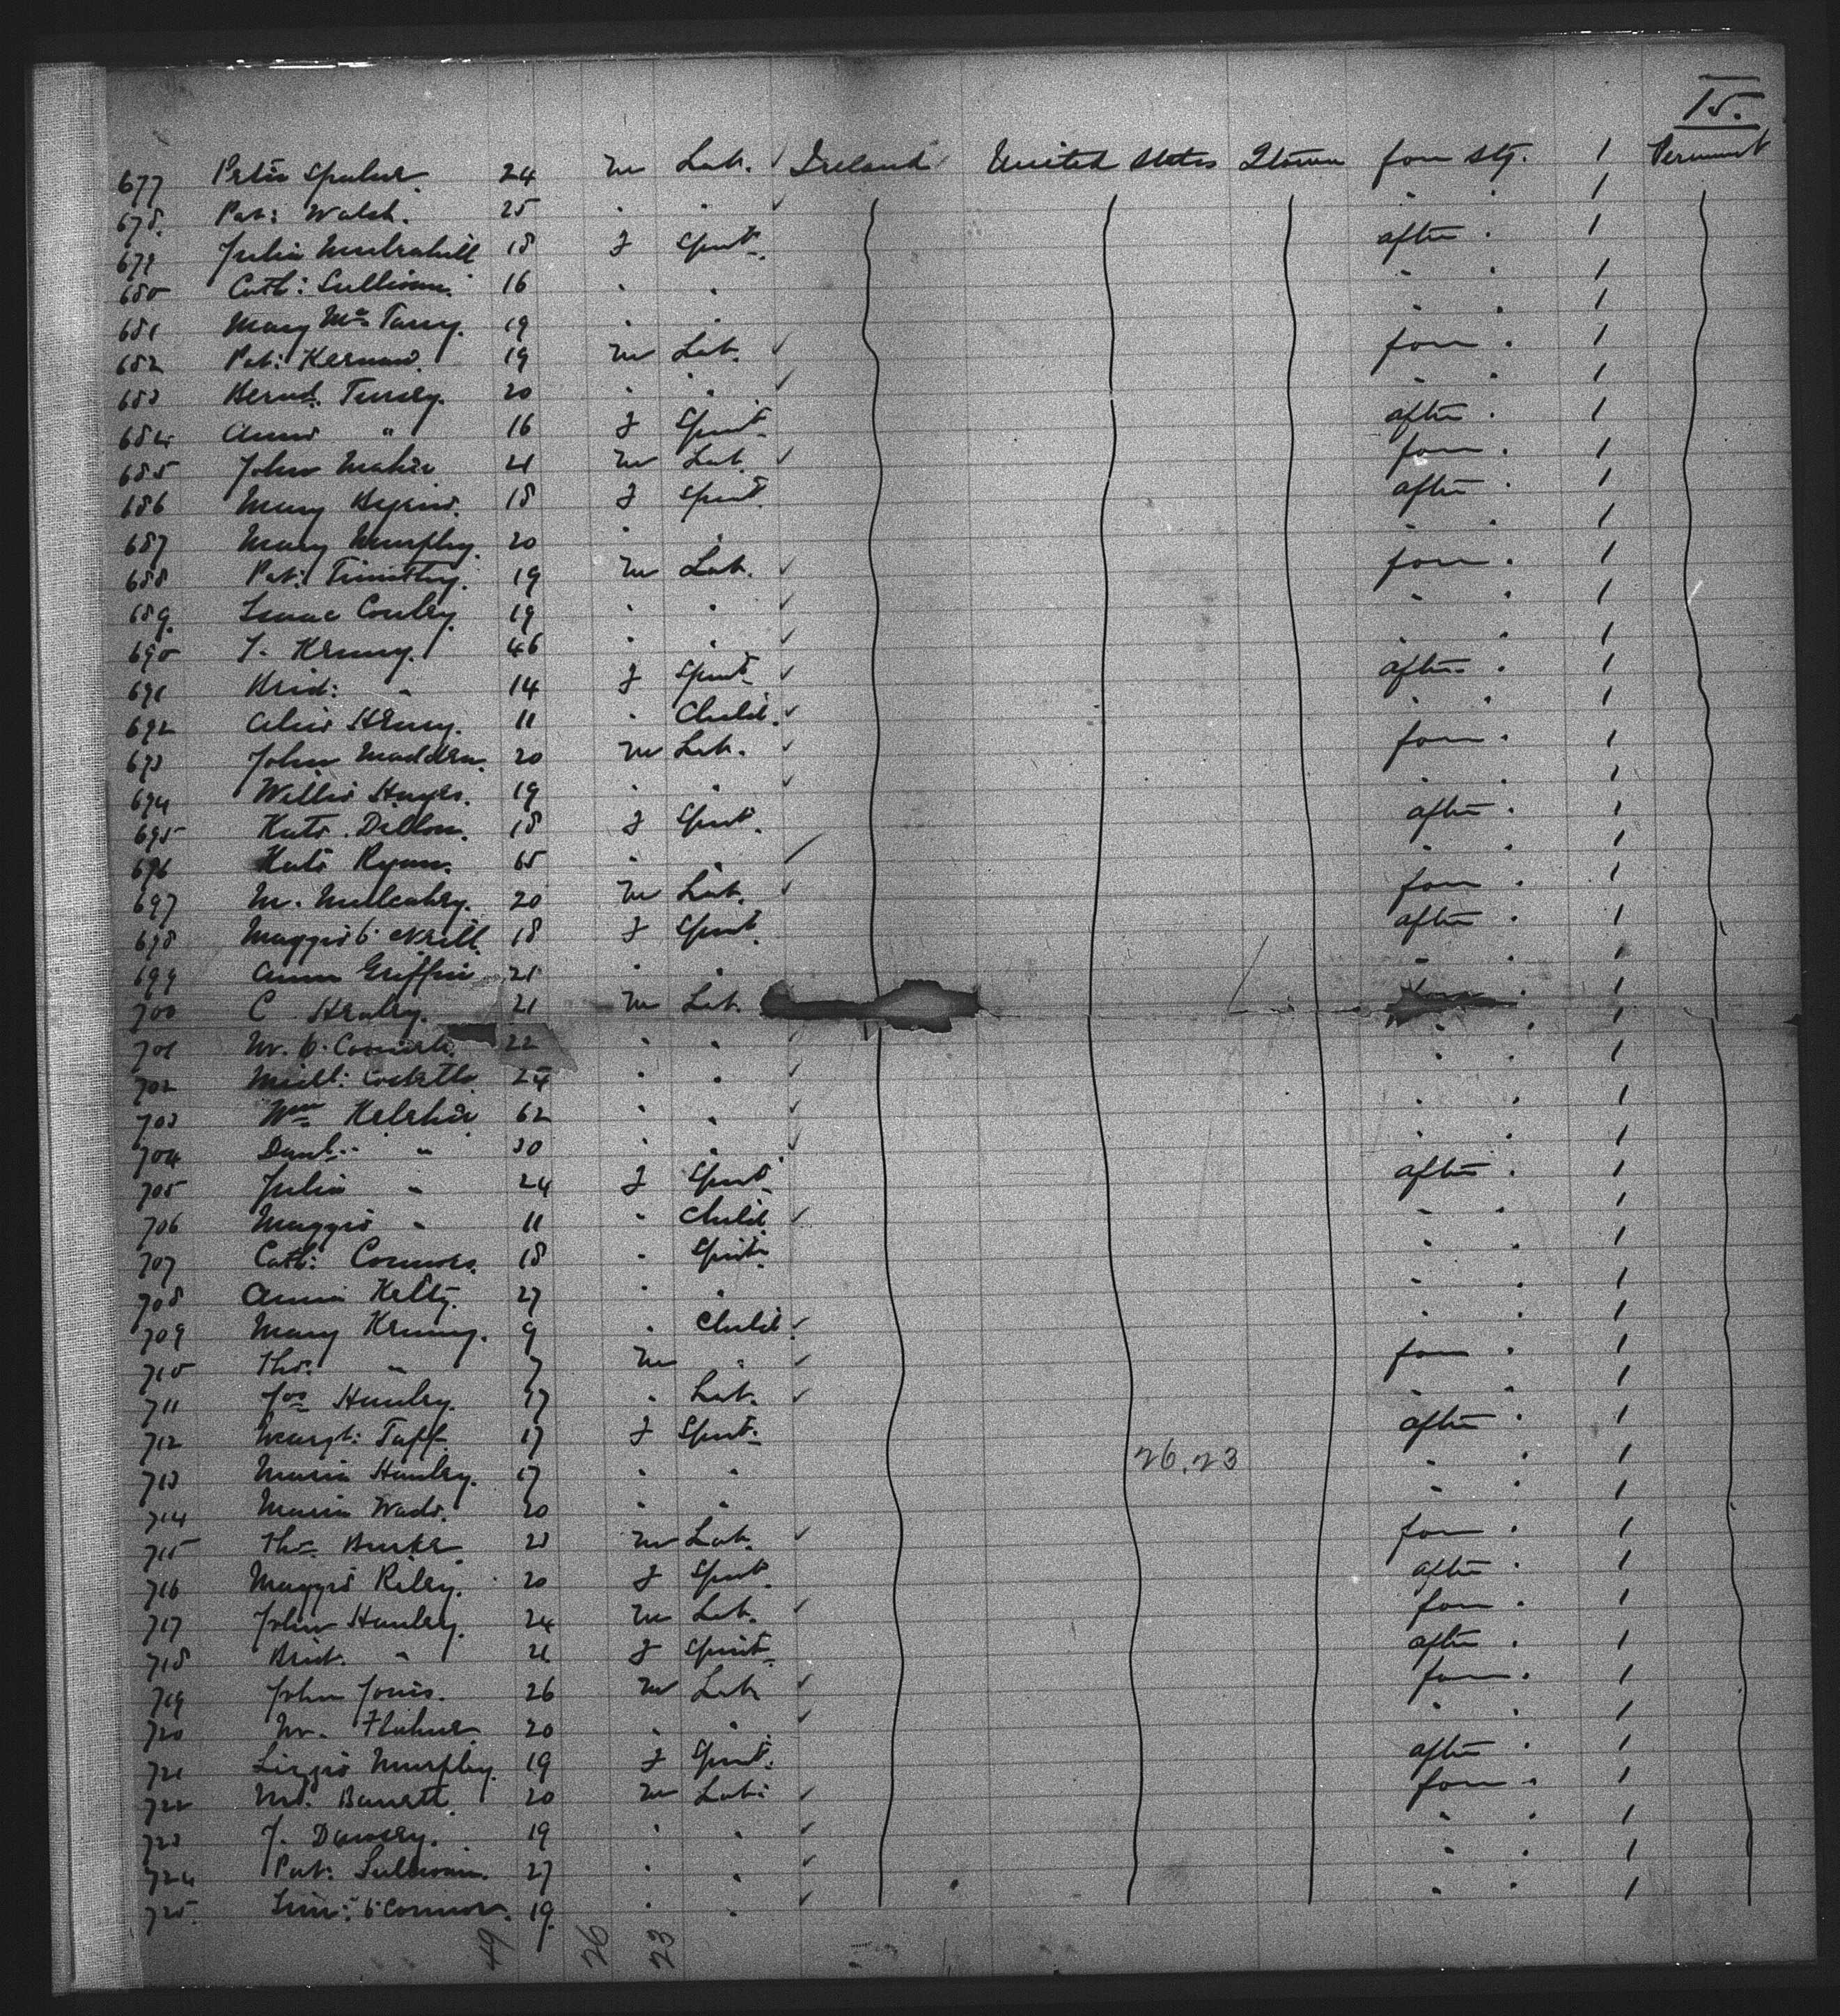 15.
677 Peter Spelman. 24 m Lab. ✓ Ireland United States Qtown fore Stg. 1 Permanent
678. Pat: Walsh. 25 " " ✓ " " 1
679 Julia Mulrahill 18 f Spinst. after " 1
680 Cath: Sullivan. 16 " " " " 1
681 Mary Mc 19 " " " " 1
682 Pat: 19 m Lab. ✓ fore " 1
683 Bernd. 20 " " ✓ " " 1
684 Anne " 16 f Spinst. after " 1
685 John Maher 21 m Lab. ✓ fore " 1
686 Mary 18 f Spinst. after " 1
687 Mary Murphy. 20 " " " " 1
688 Pat: Timothy. 19 m Lab. ✓ fore " 1
689. Isaac Conley. 19 " " ✓ " " 1
690 T. Kenny. 46 " " ✓ " " 1
691 Brid: " 14 f Spinst. ✓ after " 1
692 Alice 11 " Child. ✓ " " 1
693 John Madden. 20 m Lab. ✓ fore " 1
694 Willie Hayes. 19 " " ✓ " " 1
695 Kate Dillon. 18 f Spinst. after " 1
696 Kate Ryan. 65 " " ✓ " " 1
697 M. Mulcahey. 20 m Lab. ✓ fore " 1
698 Maggie O'Neill 18 f Spinst. after " 1
699 Ann Griffin 21 " " " " 1
700 C Healey. 21 m Lab. fore " 1
701 M. O. 22 " " ✓ " " 1
702 Michl: 24 " " ✓ " " 1
703 Wm Keleher 62 " " ✓ " " 1
704 Danl: " 30 " " ✓ " " 1
705 Julia " 24 f Spinst. after " 1
706 Maggie " 11 " Child ✓ " " 1
707 Cath: Connors. 18 " Spinst. " " 1
708 Annie Kelty. 27 " " " " 1
709 Mary Kenny. 9 " Child. ✓ " " 1
710 Thos. " 7 m " ✓ fore " 1
711 Jos Hanley. 17 " Lab. ✓ " " 1
712 Margt: Taff. 17 f Spinst. after " 1
713 Maria Hanley. 17 " " 26.23 " " 1
714 Maria Wade. 20 " " " " 1
715 Thos. Burke. 23 m Lab. ✓ fore " 1
716 Maggie Riley. 20 f Spinst. after " 1
717 John Hanley. 24 m Lab. ✓ fore " 1
718 Brid. " 21 f Spinst. after " 1
719 John Jones. 26 m Lab ✓ fore " 1
720 M. 20 " " ✓ " " 1
721 Lizzie Murphy. 19 f Spinst. after " 1
722 Md. Barrett. 20 m Lab: ✓ fore " 1
723 J. 19 " " ✓ " " 1
724 Pat: Sullivan. 27 " " ✓ " " 1
725. O'Connor. 19. " " ✓ " " 1
49 26 23